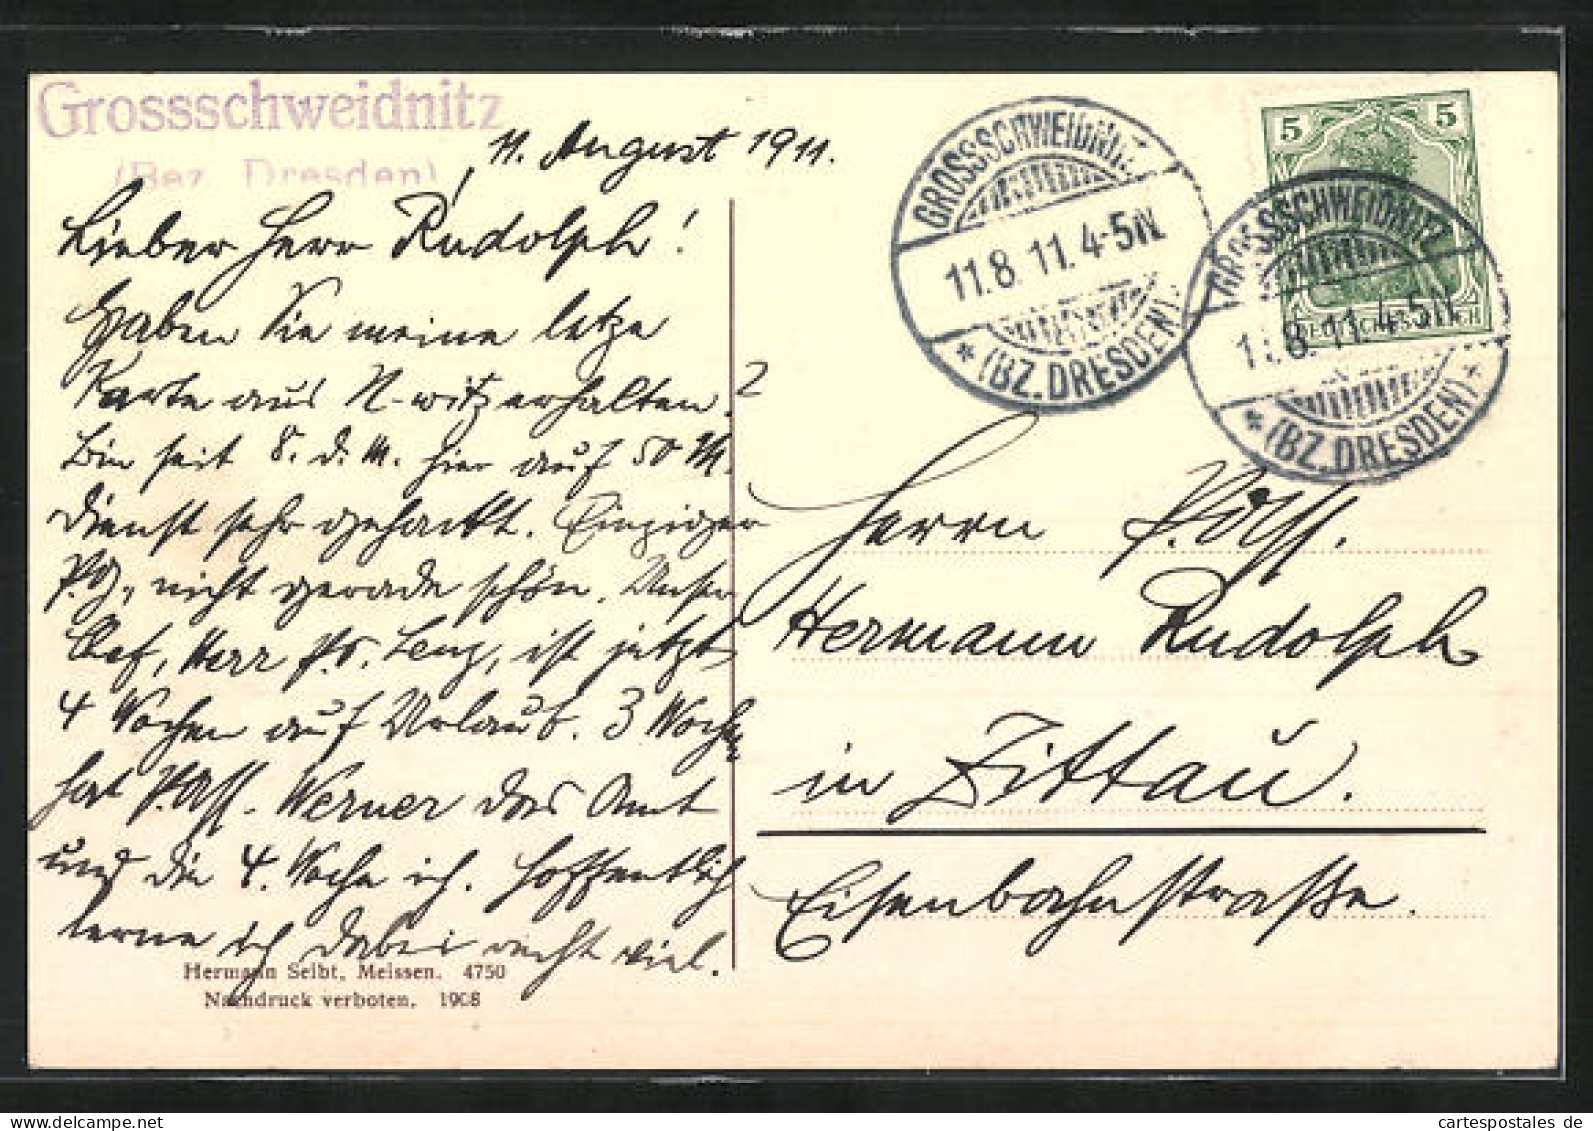 Grossschweidnitz
(Bez. Dresden)
11. August 1911.
Lieber Herr Rudolph!
Haben Sie meine letzte
Karte aus N-witz erhalten?
Bin seit 8. d. M. hier auf 50 M.
Dienst sehr gehackt. Einziger
P.G., nicht gerade schön. Unser
Chef, Herr Ps. Lenz, ist jetzt
4 Wochen auf Urlaub. 3 Wochen
hat P. Ass. Werner das Amt
und die 4. Woche ich. Hoffentlich
lerne ich dabei recht viel.
Hermann Seibt, Meissen. 4750
Nachdruck verboten. 1908
GROSSSCHWEIDNITZ
11.8.11.4-5N.
* (BZ. DRESDEN).
5 5
DEUTSCHES REICH
GROSSSCHWEIDNITZ
11.8.11.4-5N.
* (BZ. DRESDEN) *
Herrn P. Ass.
Hermann Rudolph
in Zittau.
Eisenbahnstraße.
cartespostales de